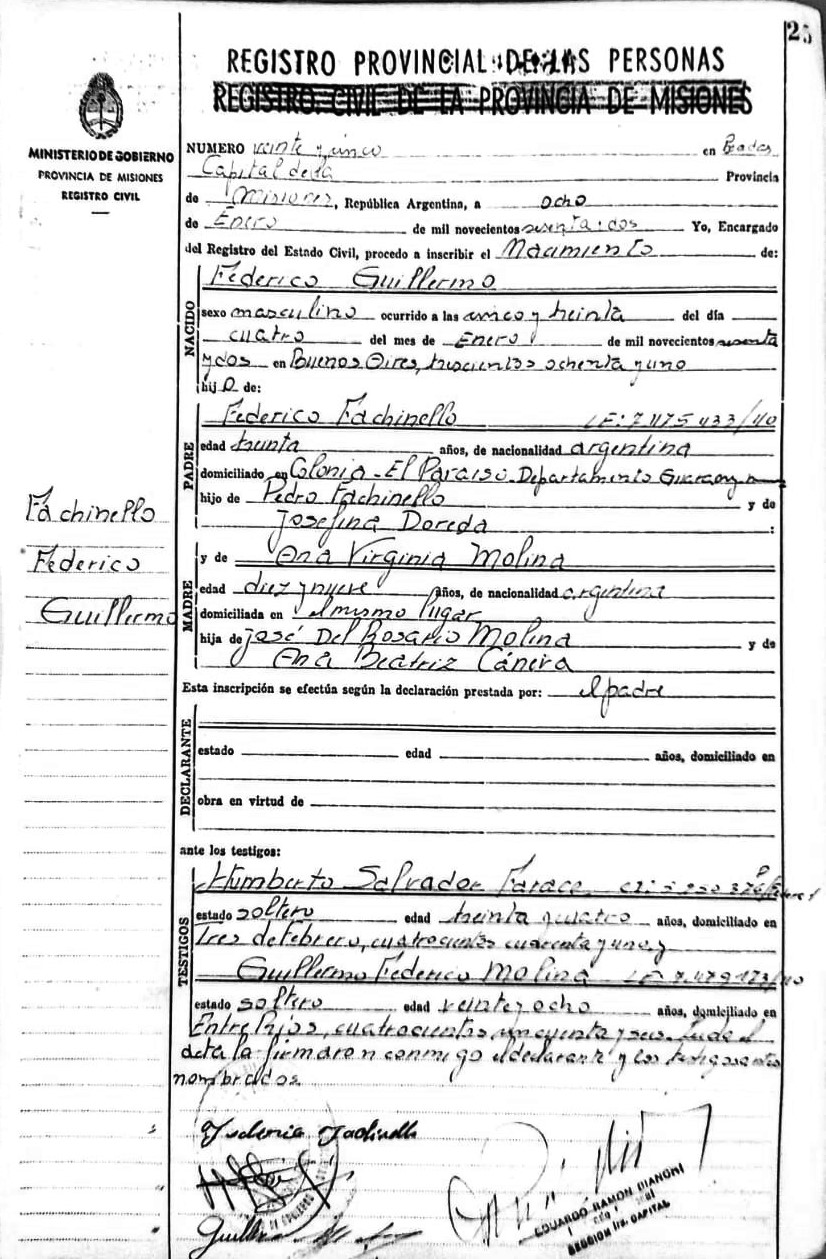 25
REGISTRO PROVINCIAL DE LAS PERSONAS
REGISTRO CIVIL DE LA PROVINCIA DE MISIONES
MINISTERIO DE GOBIERNO
PROVINCIA DE MISIONES
REGISTRO CIVIL
NUMERO veinte y cinco en Posadas
Capital de la Provincia
de Misiones, República Argentina, a ocho
de Enero de mil novecientos sesenta y dos Yo, Encargado
del Registro del Estado Civil, procedo a inscribir el Nacimiento de:
NACIDO
Federico Guillermo
sexo masculino ocurrido a las cinco y treinta del día
cuatro del mes de Enero de mil novecientos sesenta
y dos en Buenos Aires, trescientos ochenta y uno
hijo de:
PADRE
Federico Fachinello LE: 7.475.433/40
edad treinta años, de nacionalidad argentina
domiciliado en Colonia El Paraiso Departamento
hijo de Pedro Fachinello y de
Josefina Doreda :
Fachinello
Federico
Guillermo
MADRE
y de Ana Virginia Molina
edad diez y nueve años, de nacionalidad argentina
domiciliada en el mismo lugar
hija de José Del Rosario Molina y de
Ana Beatriz Cánera
Esta inscripción se efectúa según la declaración prestada por: el padre
DECLARANTE
estado edad años, domiciliado en
obra en virtud de
ante los testigos:
TESTIGOS
Humberto Salvador Farace,
estado soltero edad treinta y cuatro años, domiciliado en
Tres de febrero, cuatrocientos cuarenta y uno y
Guillermo Federico Molina LE 7.479.173/40
estado soltero edad veinte y ocho años, domiciliado en
Entre Rios, cuatrocientos cincuenta y seis. Leida el
acta la firmaron conmigo el declarante y los testigos antes
nombrados.
Federico Fachinello
Guillermo
EDUARDO RAMON BIANCHI
SECCION 1ra. CAPITAL